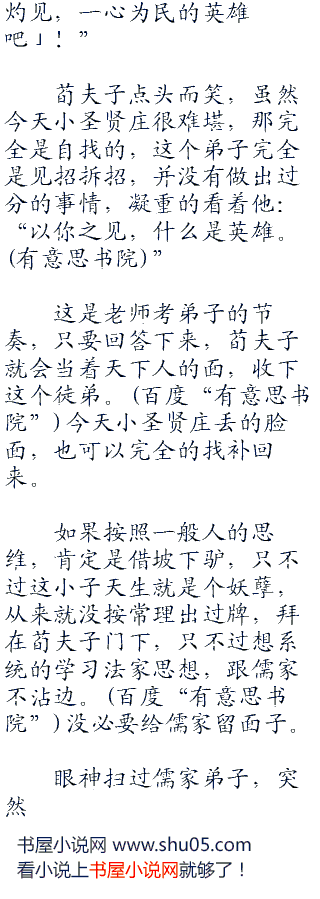 灼见，一心为民的英雄
吧」！”
荀夫子点头而笑，虽然
今天小圣贤庄很难堪，那完
全是自找的，这个弟子完全
是见招拆招，并没有做出过
分的事情，凝重的看着他：
“以你之见，什么是英雄。
(有意思书院)”
这是老师考弟子的节
奏，只要回答下来，荀夫子
就会当着天下人的面，收下
这个徒弟。(百度“有意思书
院”)今天小圣贤庄丢的脸
面，也可以完全的找补回
来。
如果按照一般人的思
维，肯定是借坡下驴，只不
过这小子天生就是个妖孽，
从来就没按常理出过牌，拜
在荀夫子门下，只不过想系
统的学习法家思想，跟儒家
不沾边。(百度“有意思书
院”)没必要给儒家留面子。
眼神扫过儒家弟子，突
然
书屋小说网 www.shu05.com
看小说上书屋小说网就够了！